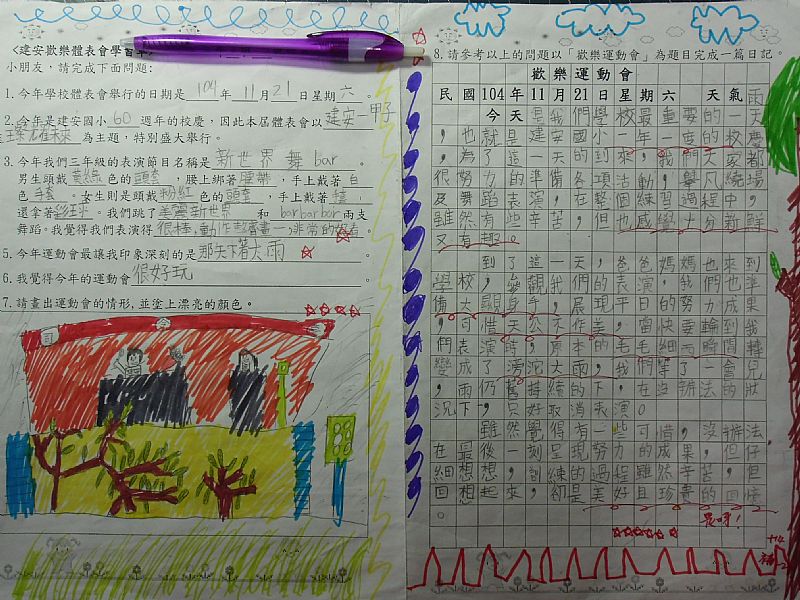 <建安歡樂體表會學習單>
小朋友，請完成下面問題：
1. 今年學校體表會舉行的日期是 104 年 11 月 21 日星期 六
2. 今年是建安國小 60 週年的校慶，因此本屆體表會以 建安一甲子
為主題，特別盛大舉行。
3. 今年我們三年級的表演節目名稱是 新世界 舞 bar
男生頭戴 黃綠 色的 頭套，腰上綁著 腰帶，手上戴著 白
色 手套。女生則是頭戴 粉紅 色的 頭套，手上戴著
還拿著 彩球。我們跳了 美麗新世界 和 barbarbar 兩支
舞蹈。我覺得我們表演得 很棒，動作整齊畫一，非常的
5. 今年運動會最讓我印象深刻的是 那天下著大雨。
6. 我覺得今年的運動會 很好玩。
7. 請畫出運動會的情形，並塗上漂亮的顏色。
8. 請參考以上的問題以「歡樂運動會」為題目完成一篇日記。
歡樂運動會
民國104年11月21日星期六 天氣雨
今天是我們學校最重要的一天
，也就是建安國小一年一度的校慶
，為了這一天的到來，我們大家都
很努力的準備各項活動，舉凡繞場
及舞蹈表演，在整個練習過程中，
雖然有些辛苦，但也感覺十分新鮮
又有趣。
到了這一天，爸爸媽媽也來到
學校，參觀我們的表演，我們也準
備大顯身手，展現平日的努力成果
，可惜天公不作美，當快要輪到我
們表演時，原本的毛毛細雨瞬間轉
變成了滂沱大雨，我們等了一會兒
，雨仍舊持續的下，在沒辦法的狀
況下，只好取消表演。
雖然覺得有一些可惜，沒辦法
在最後一刻呈現努力的成果，但仔
細想想，訓練的過程雖然辛苦，但
回想起來，卻是美好且珍貴的回憶
。